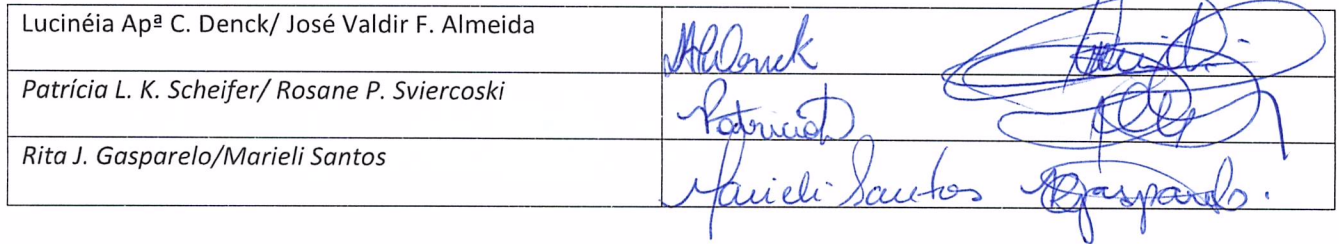 Lucinéia Apª C. Denck/ José Valdir F. Almeida
Patrícia L. K. Scheifer/ Rosane P. Sviercoski
Patricia
Rita J. Gasparelo/Marieli Santos
Marieli Santos